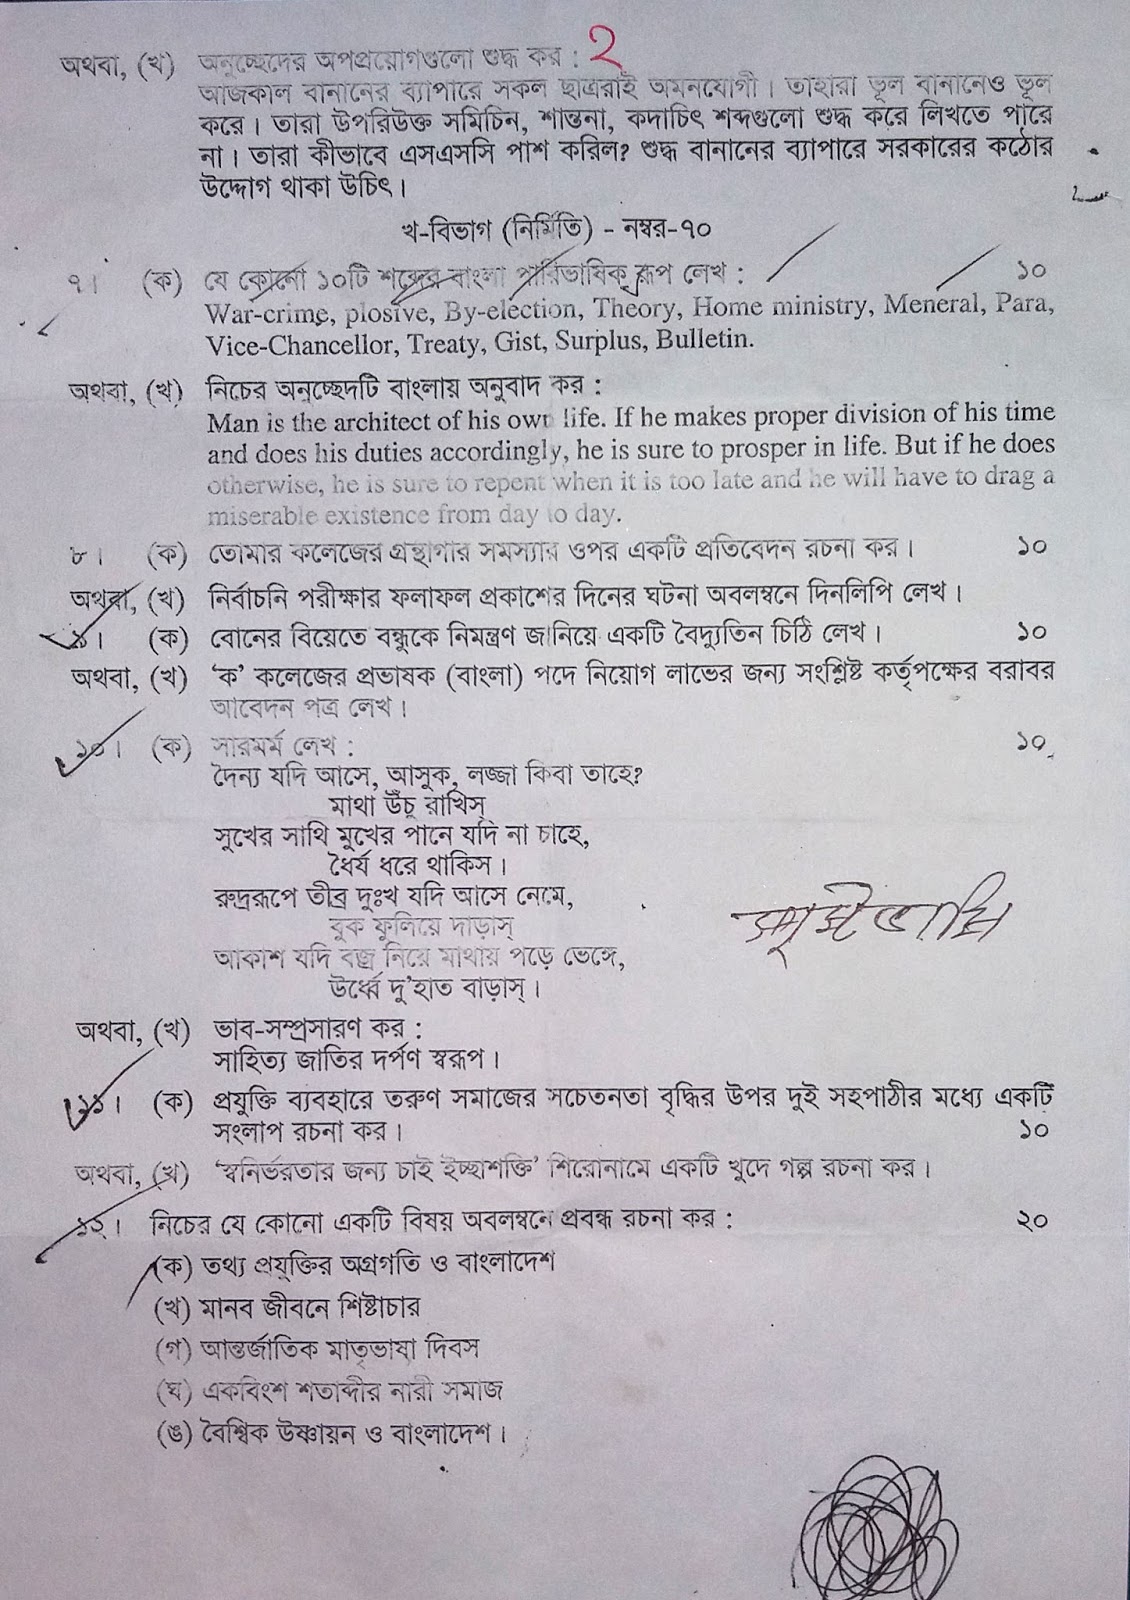 অথবা, (খ) অনুচ্ছেদের অপপ্রয়োগগুলো শুদ্ধ কর : ২
আজকাল বানানের ব্যাপারে সকল ছাত্ররাই অমনযোগী। তাহারা ভূল বানানেও ভূল
করে। তারা উপরিউক্ত সমিচিন, শান্তনা, কদাচিৎ শব্দগুলো শুদ্ধ করে লিখতে পারে
না। তারা কীভাবে এসএসসি পাশ করিল? শুদ্ধ বানানের ব্যাপারে সরকারের কঠোর
উদ্দোগ থাকা উচিৎ।
খ-বিভাগ (নির্মিতি) - নম্বর-৭০
৭। (ক) যে কোনো ১০টি শব্দের বাংলা পারিভাষিক রূপ লেখ : ১০
War-crime, plosive, By-election, Theory, Home ministry, Meneral, Para,
Vice-Chancellor, Treaty, Gist, Surplus, Bulletin.
অথবা, (খ) নিচের অনুচ্ছেদটি বাংলায় অনুবাদ কর :
Man is the architect of his own life. If he makes proper division of his time
and does his duties accordingly, he is sure to prosper in life. But if he does
otherwise, he is sure to repent when it is too late and he will have to drag a
miserable existence from day to day.
৮। (ক) তোমার কলেজের গ্রন্থাগার সমস্যার ওপর একটি প্রতিবেদন রচনা কর। ১০
অথবা, (খ) নির্বাচনি পরীক্ষার ফলাফল প্রকাশের দিনের ঘটনা অবলম্বনে দিনলিপি লেখ।
৯। (ক) বোনের বিয়েতে বন্ধুকে নিমন্ত্রণ জানিয়ে একটি বৈদ্যুতিন চিঠি লেখ। ১০
অথবা, (খ) ‘ক’ কলেজের প্রভাষক (বাংলা) পদে নিয়োগ লাভের জন্য সংশ্লিষ্ট কর্তৃপক্ষের বরাবর
আবেদন পত্র লেখ।
১০। (ক) সারমর্ম লেখ : ১০
দৈন্য যদি আসে, আসুক, লজ্জা কিবা তাহে?
মাথা উঁচু রাখিস্
সুখের সাথি মুখের পানে যদি না চাহে,
ধৈর্য ধরে থাকিস।
রুদ্ররূপে তীব্র দুঃখ যদি আসে নেমে,
বুক ফুলিয়ে দাড়াস্
আকাশ যদি বজ্র নিয়ে মাথায় পড়ে ভেঙ্গে,
উর্ধ্বে দু’হাত বাড়াস্।
অথবা, (খ) ভাব-সম্প্রসারণ কর :
সাহিত্য জাতির দর্পণ স্বরূপ।
১১। (ক) প্রযুক্তি ব্যবহারে তরুণ সমাজের সচেতনতা বৃদ্ধির উপর দুই সহপাঠীর মধ্যে একটি
সংলাপ রচনা কর। ১০
অথবা, (খ) ‘স্বনির্ভরতার জন্য চাই ইচ্ছাশক্তি’ শিরোনামে একটি খুদে গল্প রচনা কর।
১২। নিচের যে কোনো একটি বিষয় অবলম্বনে প্রবন্ধ রচনা কর : ২০
(ক) তথ্য প্রযুক্তির অগ্রগতি ও বাংলাদেশ
(খ) মানব জীবনে শিষ্টাচার
(গ) আন্তর্জাতিক মাতৃভাষা দিবস
(ঘ) একবিংশ শতাব্দীর নারী সমাজ
(ঙ) বৈশ্বিক উষ্ণায়ন ও বাংলাদেশ।